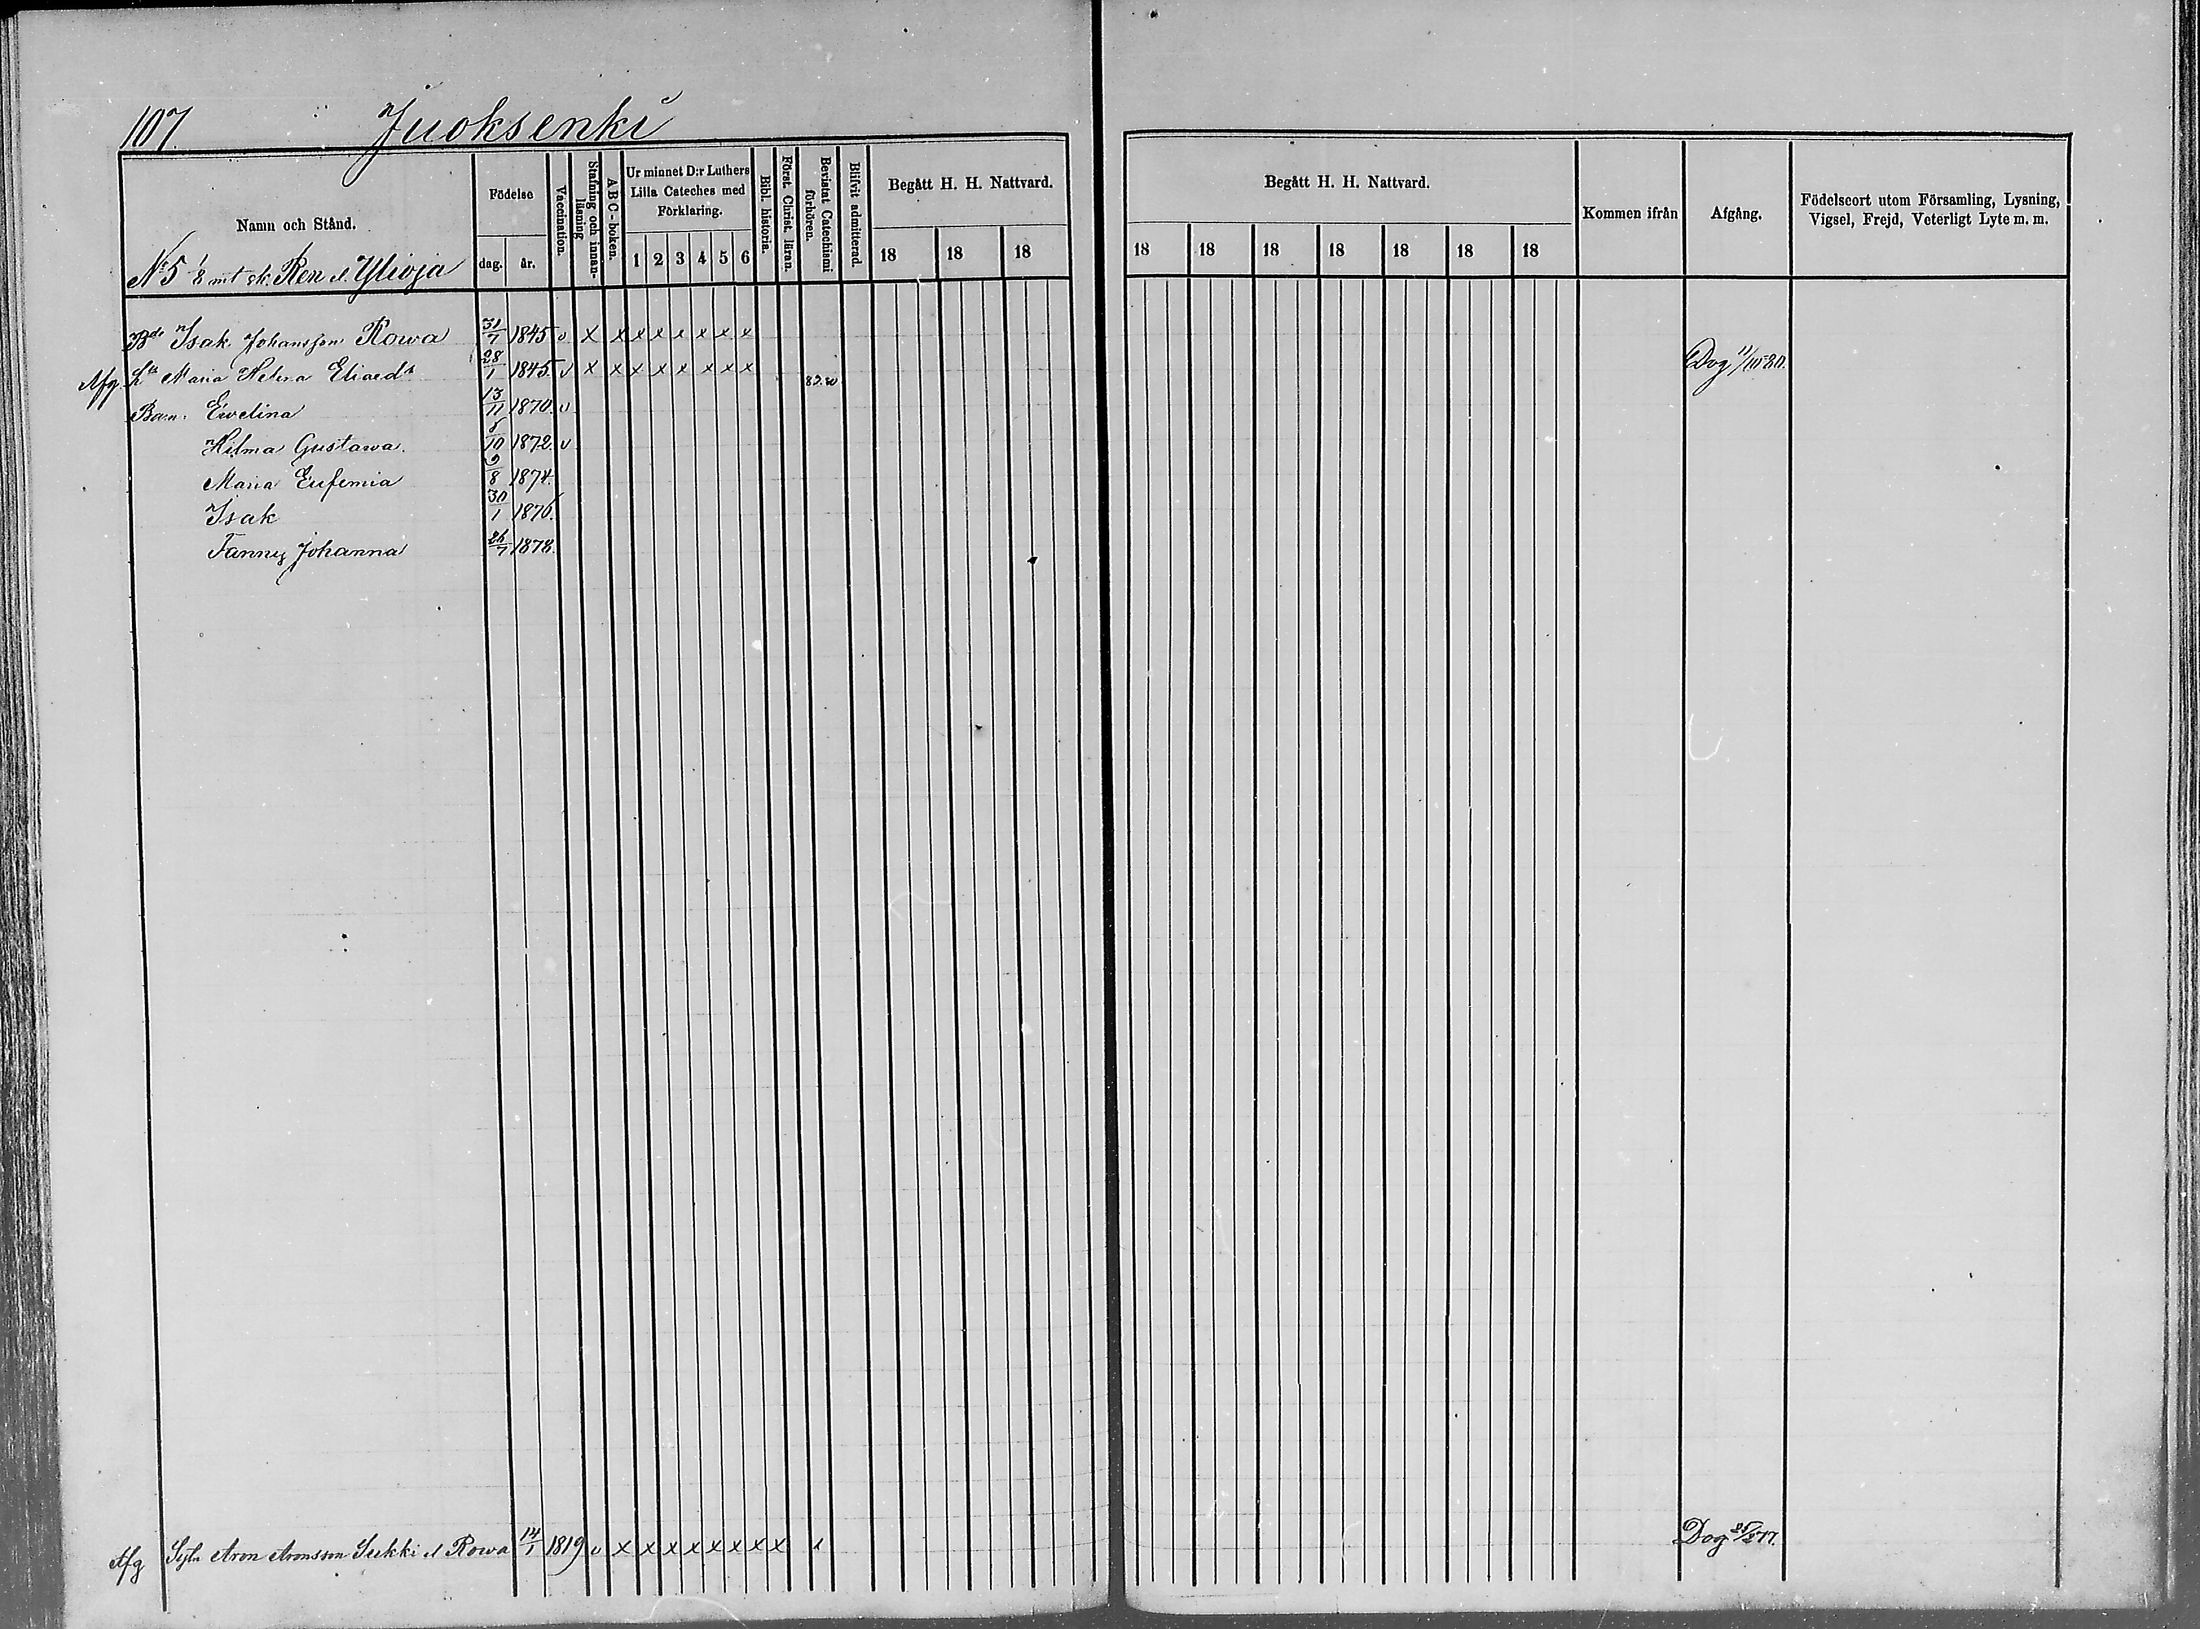 107. Juoksenki
Namn och Stånd.
Födelse
dag.
år.
Vaccination.
Stafning och innanläsning
ABC-boken.
Ur minnet D:r Luthers Lilla Cateches med Förklaring.
1 2 3 4 5 6
Bibl. historia.
Först. Christ. läran.
Bevistat Catechismi förhören.
Blifvit admitterad.
Begått H. H. Nattvard.
18 18 18
Begått H. H. Nattvard.
18 18 18 18 18 18 18
Kommen ifrån
Afgång.
Födelseort utom Församling, Lysning, Vigsel, Frejd, Veterligt Lyte m. m.
No 5 1/8 mt sk. Ren el. Ylioja
Bde Isak Johansson Rowa 31/7 1845 v x x x x x x x x
Afg. Maria Helena Eliaedr 28/1 1845. v x x x x x x x x 82.80 Dog 11/10 80.
Barn: Ewelina 13/11 1870. v
Hilma Gustawa. 8/10 1872. v
Maria Eufemia 9/8 1874.
Isak 30/1 1876.
Fanny Johanna 26/7 1878.
Afg Aron Aronsson el Rowa 14/1 1819 v x x x x x x x x x 1 Dog